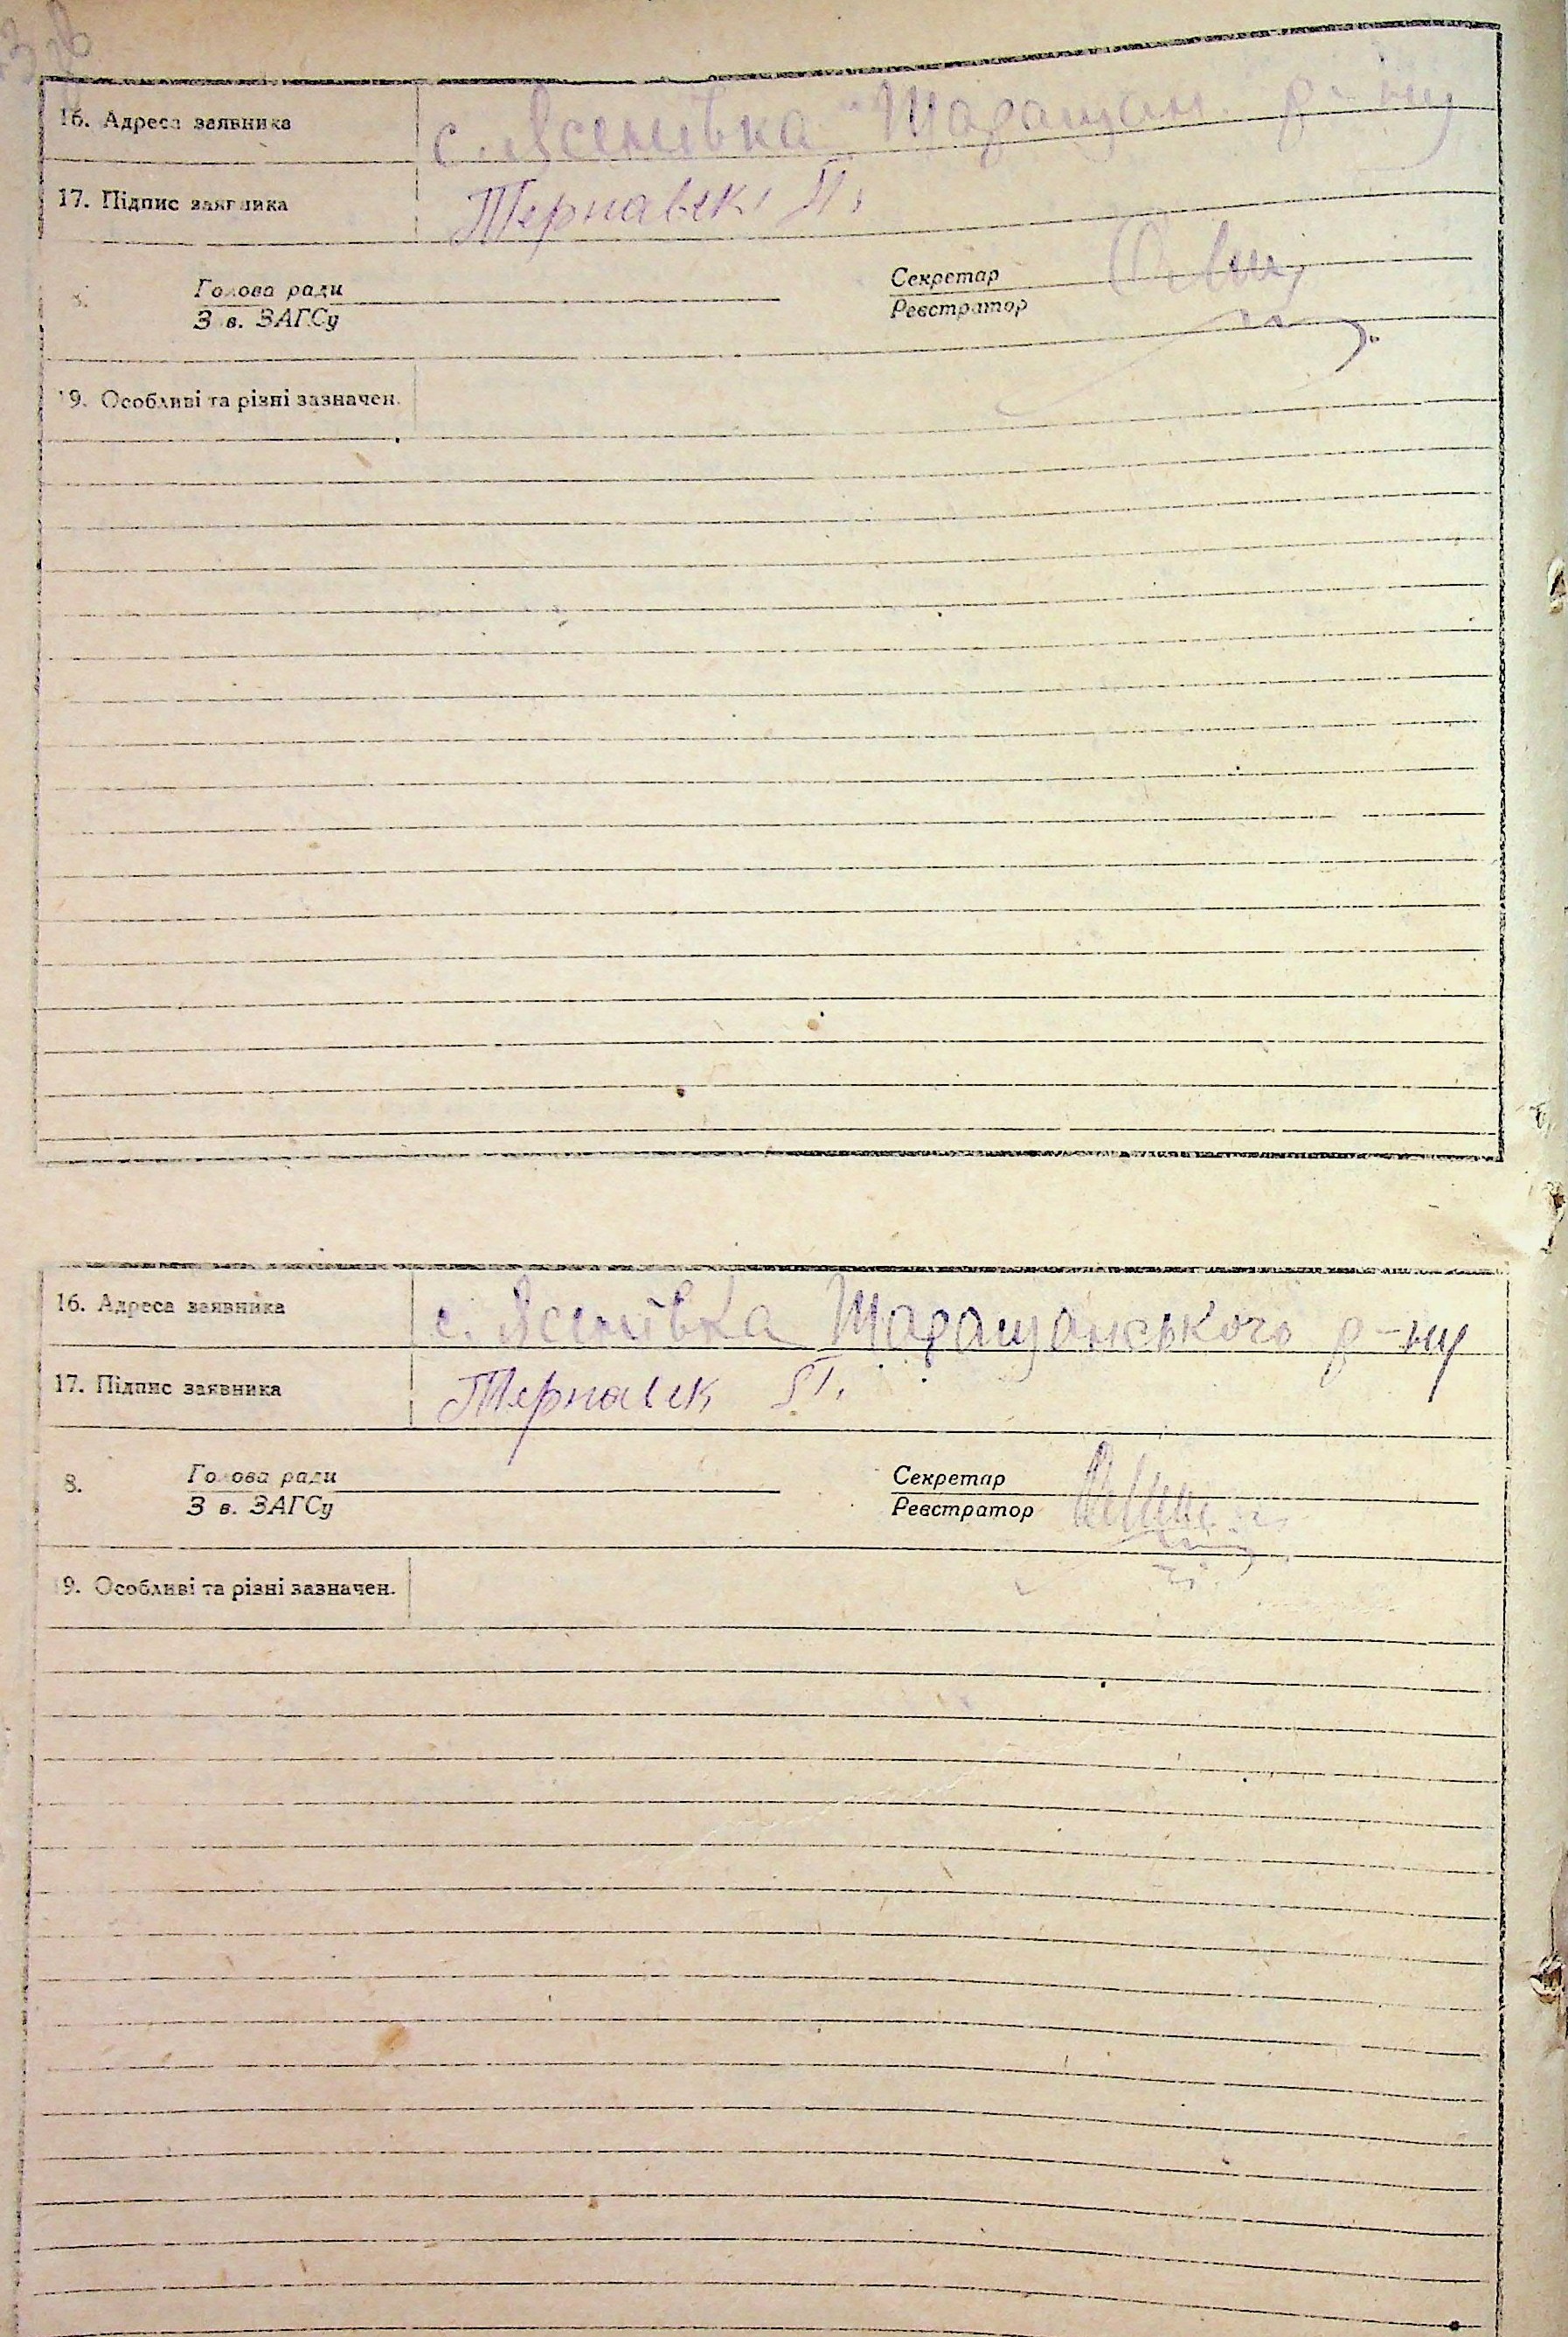 16. Адреса заявника с. Ясенівка Таращан. р-ну
17. Підпис заявника Тернавск П.
Голова ради Секретар
Зав. ЗАГСу Реєстратор
19. Особливі та різні зазначен.
16. Адреса заявника с. Ясенівка Таращанського р-ну
17. Підпис заявника Тернавск П.
8. Голова ради Секретар
Зав. ЗАГСу Реєстратор
19. Особливі та різні зазначен.